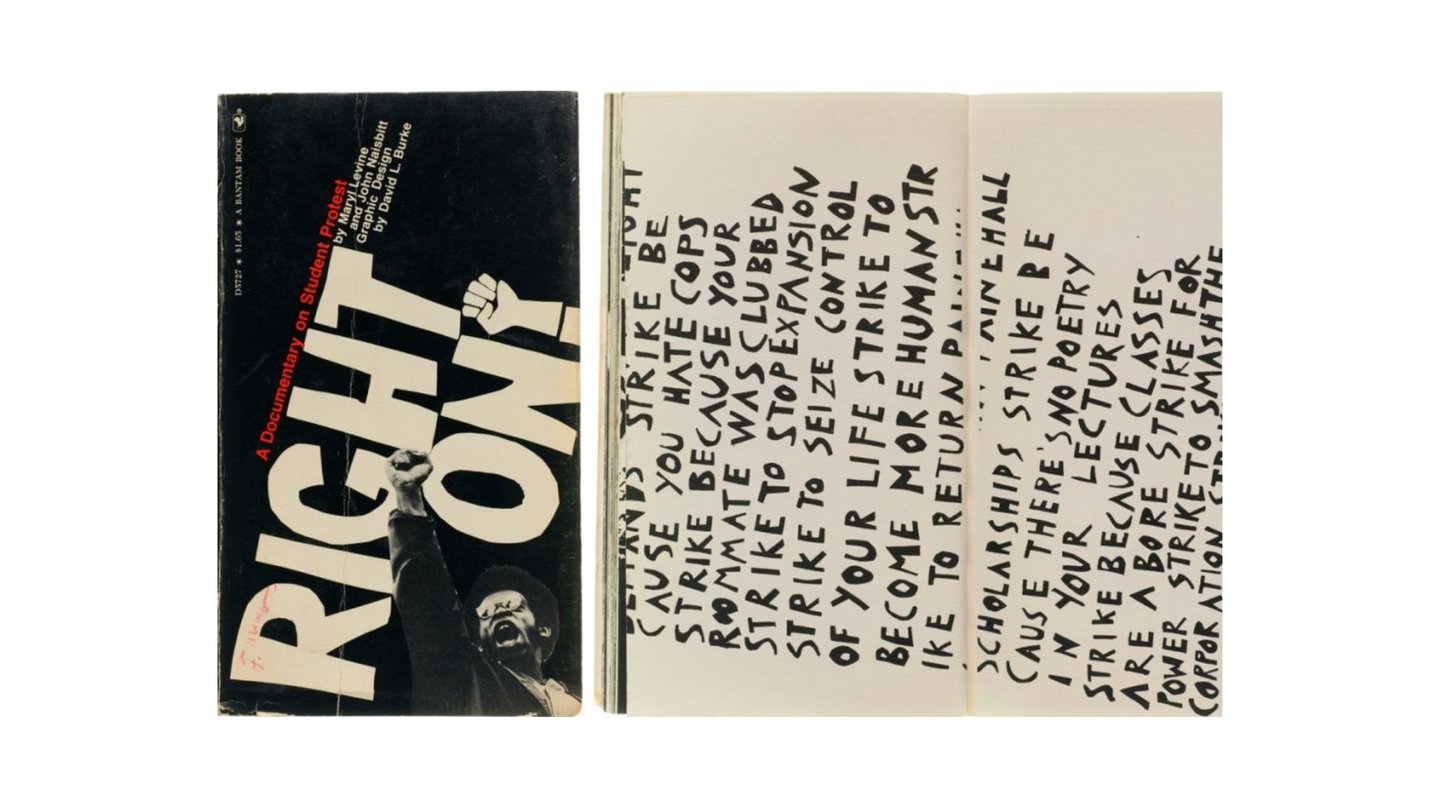 D5727 * $1.65 * A BANTAM BOOK
A Documentary on Student Protest
by Maryl Levine
and John Naisbitt
Graphic Design
by David L. Burke
RIGHT
ON!
DEMANDS STRIKE BE
CAUSE YOU HATE COPS
STRIKE BECAUSE YOUR
ROOMMATE WAS CLUBBED
STRIKE TO STOP EXPANSION
STRIKE TO SEIZE CONTROL
OF YOUR LIFE STRIKE TO
BECOME MORE HUMAN STR
IKE TO RETURN PAINE HALL
SCHOLARSHIPS STRIKE BE
CAUSE THERE'S NO POETRY
IN YOUR LECTURES
STRIKE BECAUSE CLASSES
ARE A BORE STRIKE FOR
POWER STRIKE TO SMASH THE
CORPORATION